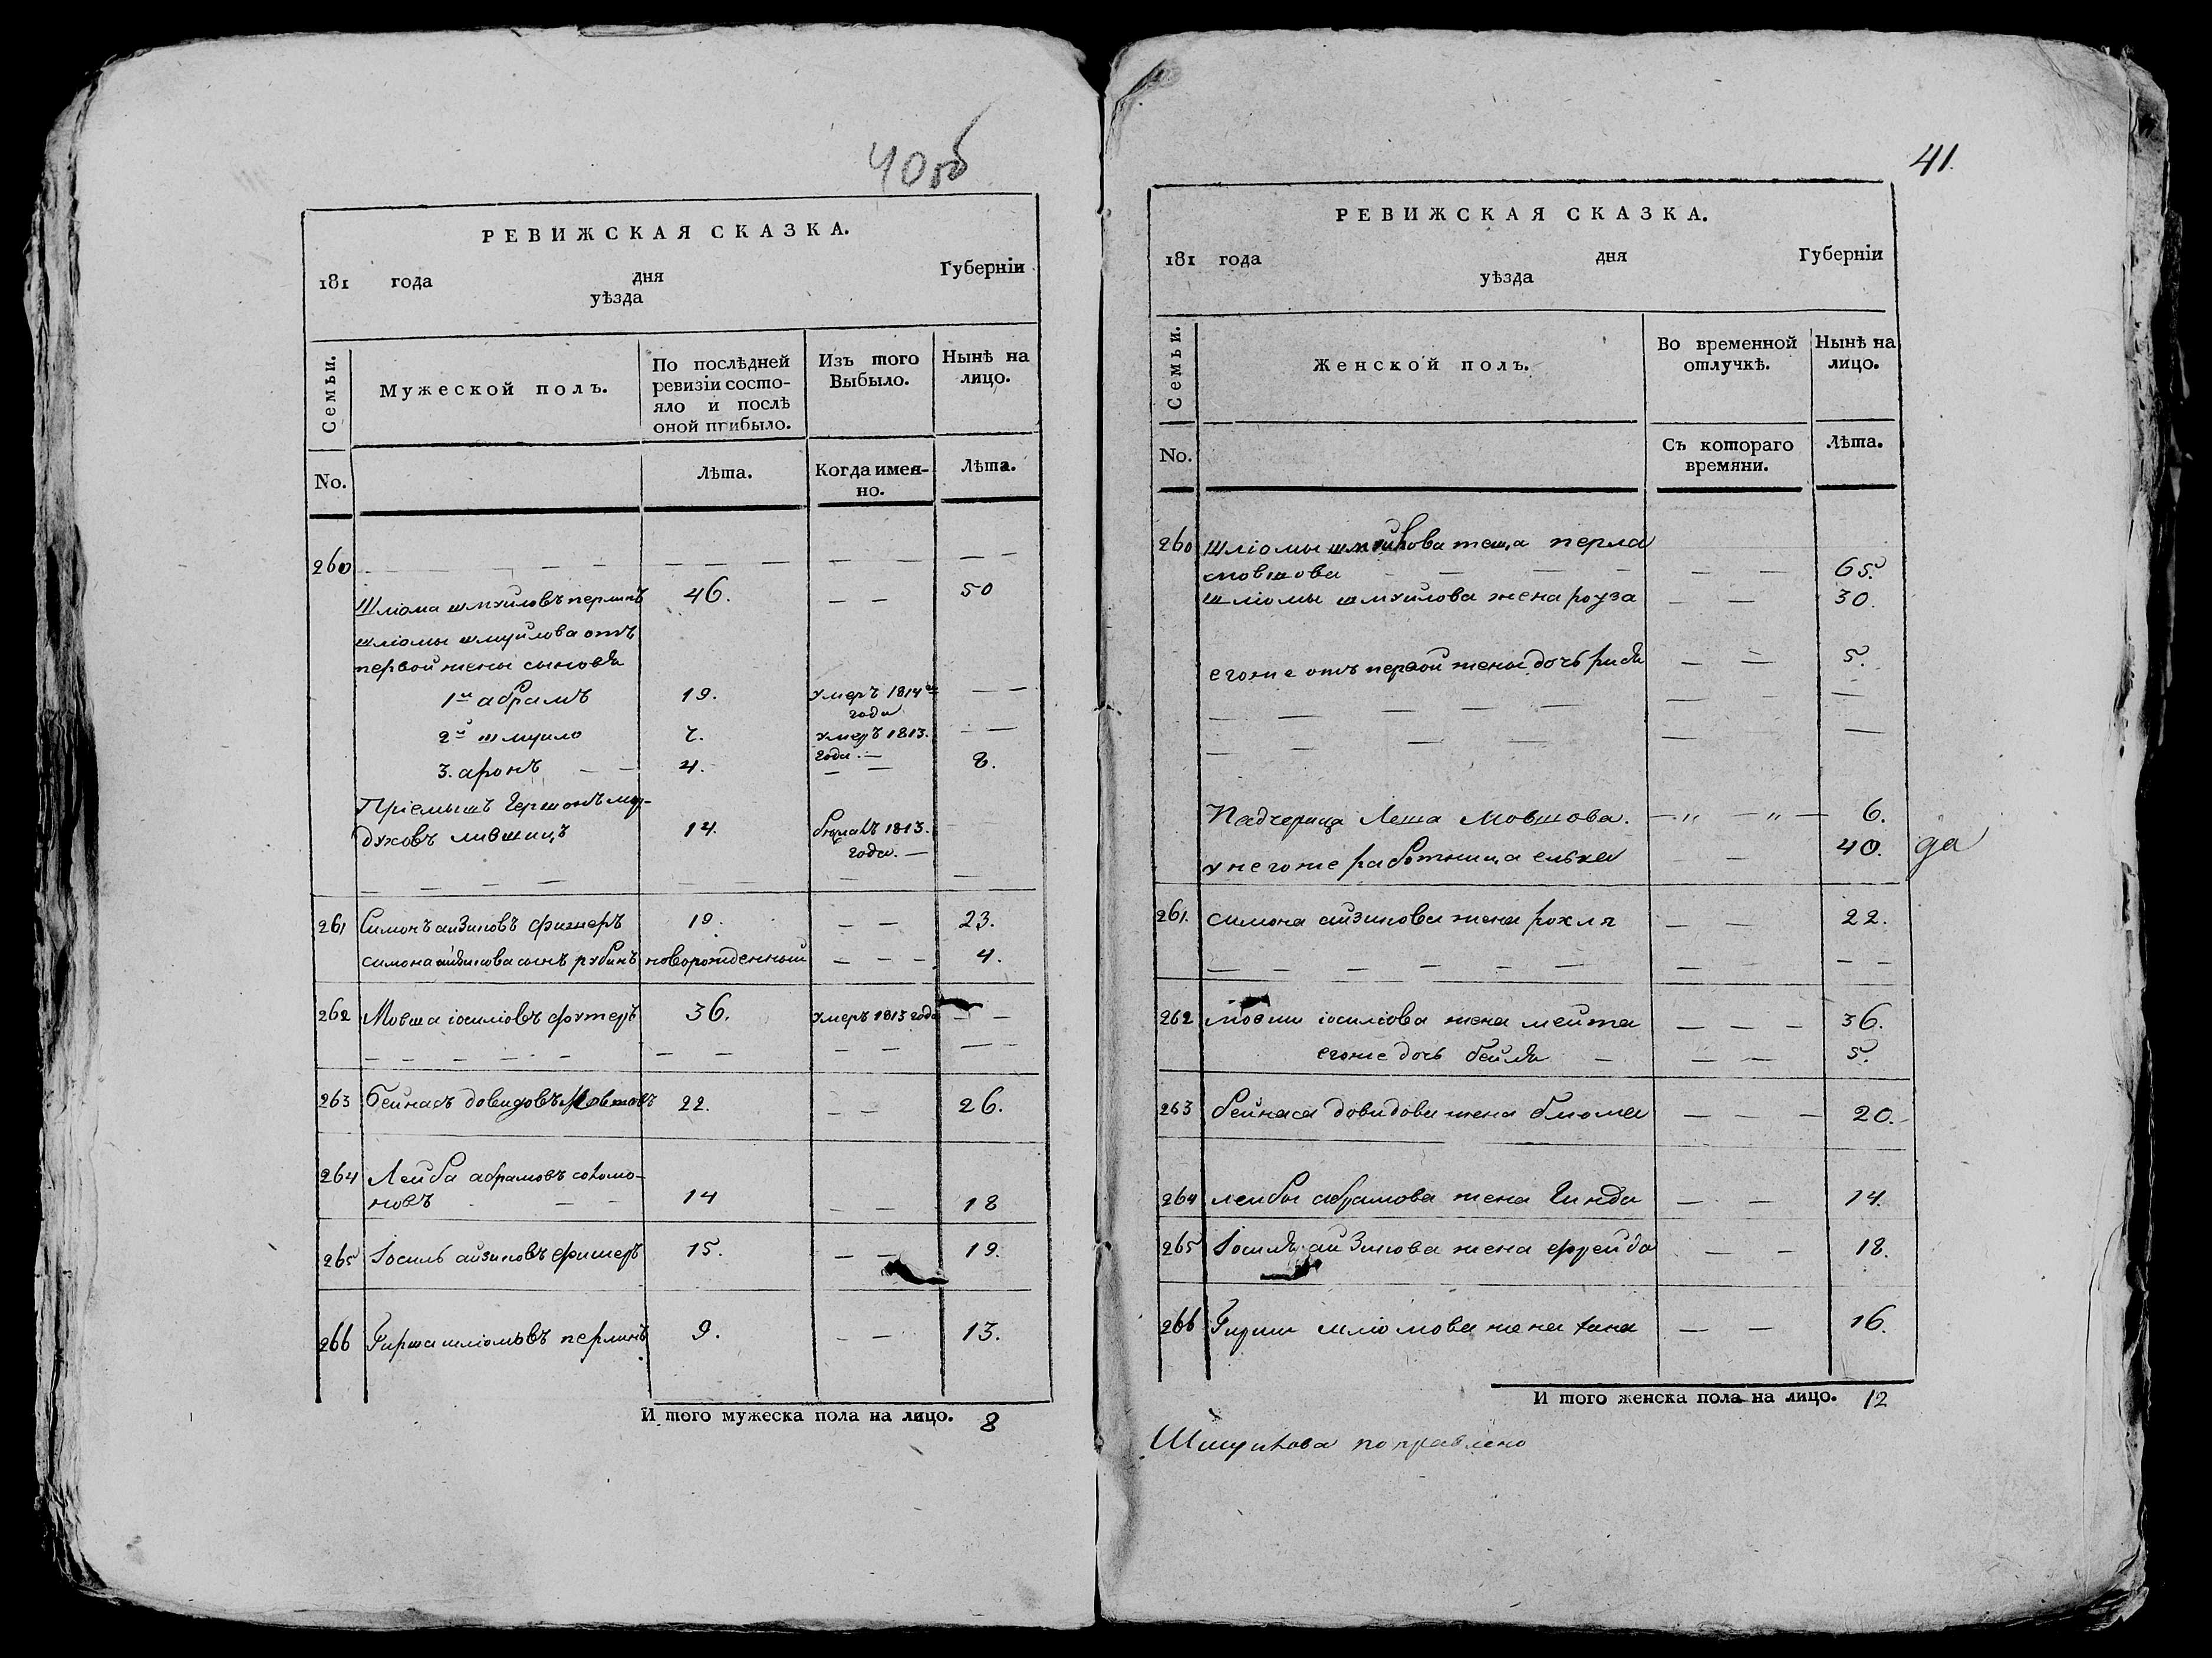 40 об
РЕВИЖСКАЯ СКАЗКА.
181 года дня Губерніи
уѣзда
Семьи.
Мужеской полъ.
По послѣдней ревизіи состо-
яло и послѣ
оной прибыло.
Изъ того
Выбыло.
Нынѣ на
лицо.
No.
Лѣта.
Когда имен-
но.
Лѣта.
260
Шліома шмуиловъ перлинъ 46. — — 50
шліомы шмуилова отъ
первой жены сыновя
1й абрамъ 19. умеръ 1814го
года — —
2й шмуило 7. умеръ 1813.
года. — — —
3. аронъ — — 4. — — 8.
Пріемышъ Гершонъ мор-
духовъ лившицъ 14. 1813.
года. —
261 Симонъ айзиковъ фишеръ 19. — — 23.
симона айзикова сынъ рубинъ новорожденный — — — 4.
262 Мовша іосиліовъ футеръ 36. умеръ 1813 года — —
263 Бейнасъ довидовъ 22. — — 26.
264 Лейба абрамовъ соломо-
новъ — — 14 — — 18
265 Іосиль айзиковъ фишеръ 15. — — 19.
266 Гирша шліомовъ перлинъ 9. — — 13.
И того мужеска пола на лицо. 8
41.
РЕВИЖСКАЯ СКАЗКА.
181 года дня Губерніи
уѣзда
Семьи.
Женской полъ.
Во временной
отлучкѣ.
Нынѣ на
лицо.
No.
Съ котораго
времяни.
Лѣта.
260 Шліомы шмуйлова теща перла
мовшова — — 65.
шліомы шмуилова жена роуза — — 30.
егоже отъ первой жены дочь — — 5.
Падчерица Леша Мовшова. — „ — „ — 6.
у негоже работница елька — 40. да
261. симона айзикова жена рохля — — 22.
262 мовши іосиліова жена мейта — — — 36.
егоже дочь бейля — — — 5.
263 бейнаса довидова жена блюма — — — 20.
264 лейбы абрамова жена Гинда — — 14.
265 Іосиля айзикова жена фрейда — — 18.
266 Гирши шліомова жена хана — — 16.
И того женска пола на лицо. 12
Шмуилова поправлено